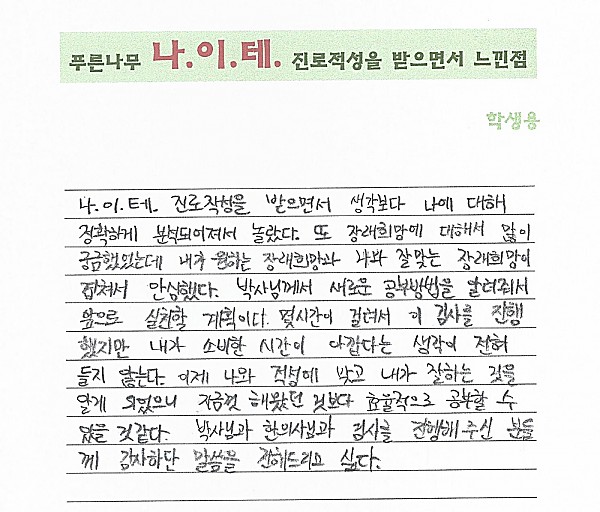 푸른나무 나.이.테. 진로적성을 받으면서 느낀점
학생용
나.이.테. 진로적성을 받으면서 생각보다 나에 대해
정확하게 분석되어져서 놀랐다. 또 장래희망에 대해서 많이
궁금했었는데 내가 원하는 장래희망과 나와 잘맞는 장래희망이
겹쳐서 안심했다. 박사님께서 새로운 공부방법을 알려줘서
앞으로 실천할 계획이다. 몇시간이 걸려서 이 검사를 진행
했지만 내가 소비한 시간이 아깝다는 생각이 전혀
들지 않는다. 이제 나와 적성에 맞고 내가 잘하는 것을
알게 되었으니 지금껏 해왔던 것보다 효율적으로 공부할 수
있을 것같다. 박사님과 한의사님과 검사를 진행해 주신 분들
께 감사하단 말씀을 전해드리고 싶다.